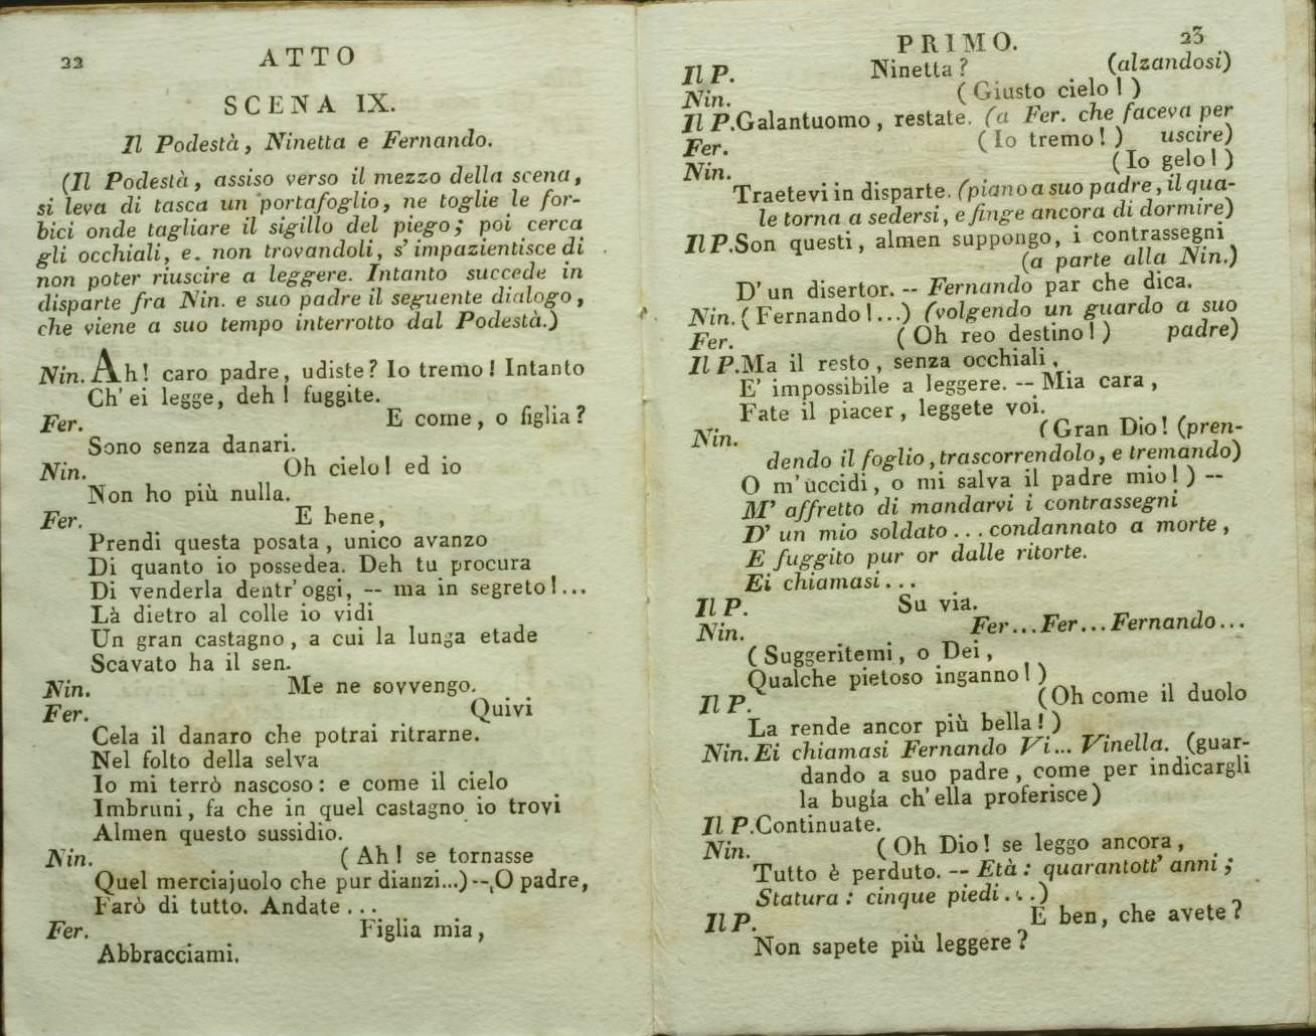 22 ATTO
SCENA IX.
Il Podestà, Ninetta e Fernando.
(Il Podestà, assiso verso il mezzo della scena,
si leva di tasca un portafoglio, ne toglie le for-
bici onde tagliare il sigillo del piego; poi cerca
gli occhiali, e. non trovandoli, s' impazientisce di
non poter riuscire a leggere. Intanto succede in
disparte fra Nin. e suo padre il seguente dialogo,
che viene a suo tempo interrotto dal Podestà.)
Nin. Ah! caro padre, udiste? Io tremo! Intanto
Ch' ei legge, deh! fuggite.
Fer. E come, o figlia?
Sono senza danari.
Nin. Oh cielo! ed io
Non ho più nulla.
Fer. E bene,
Prendi questa posata, unico avanzo
Di quanto io possedea. Deh tu procura
Di venderla dentr' oggi, -- ma in segreto!...
Là dietro al colle io vidi
Un gran castagno, a cui la lunga etade
Scavato ha il sen.
Nin. Me ne sovvengo.
Fer. Quivi
Cela il danaro che potrai ritrarne.
Nel folto della selva
Io mi terrò nascoso: e come il cielo
Imbruni, fa che in quel castagno io trovi
Almen questo sussidio.
Nin. (Ah! se tornasse
Quel merciajuolo che pur dianzi...) -- O padre,
Farò di tutto. Andate...
Fer. Figlia mia,
Abbracciami.
PRIMO. 23
Il P. Ninetta? (alzandosi)
Nin. (Giusto cielo!)
Il P. Galantuomo, restate. (a Fer. che faceva per
Fer. (Io tremo!) uscire)
Nin. (Io gelo!)
Traetevi in disparte. (piano a suo padre, il qua-
le torna a sedersi, e finge ancora di dormire)
Il P. Son questi, almen suppongo, i contrassegni
(a parte alla Nin.)
D' un disertor. -- Fernando par che dica.
Nin. (Fernando!...) (volgendo un guardo a suo
Fer. (Oh reo destino!) padre)
Il P. Ma il resto, senza occhiali,
E' impossibile a leggere. -- Mia cara,
Fate il piacer, leggete voi.
Nin. (Gran Dio! (pren-
dendo il foglio, trascorrendolo, e tremando)
O m' uccidi, o mi salva il padre mio!) --
M' affretto di mandarvi i contrassegni
D' un mio soldato... condannato a morte,
E fuggito pur or dalle ritorte.
Ei chiamasi...
Il P. Su via.
Nin. Fer...Fer...Fernando...
(Suggeritemi, o Dei,
Qualche pietoso inganno!)
Il P. (Oh come il duolo
La rende ancor più bella!)
Nin. Ei chiamasi Fernando Vi... Vinella. (guar-
dando a suo padre, come per indicargli
la bugía ch' ella proferisce)
Il P. Continuate.
Nin. (Oh Dio! se leggo ancora,
Tutto è perduto. -- Età: quarantott' anni;
Statura: cinque piedi...)
Il P. E ben, che avete?
Non sapete più leggere?